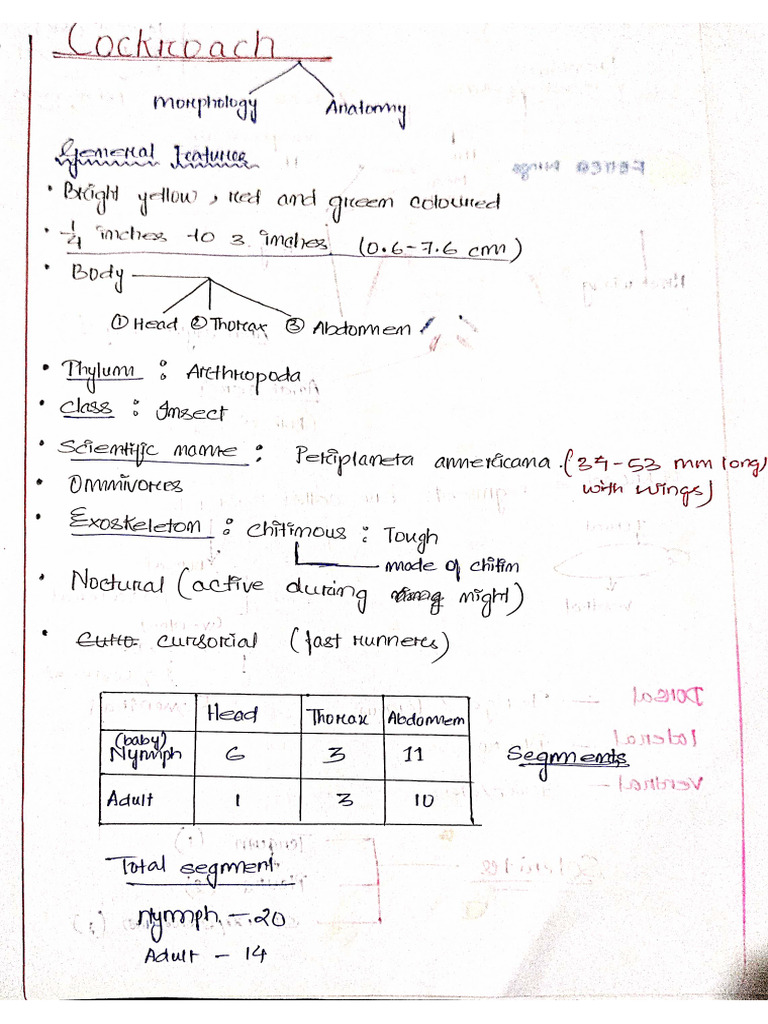 Cockroach
Morphology Anatomy
General Features
• Bright yellow, red and green coloured
• 1/4 inches to 3 inches (0.6-7.6 cm)
• Body
① Head ② Thorax ③ Abdomen
• Phylum : Arthropoda
• Class : Insect
• Scientific name : Periplaneta americana. (34-53 mm long with wings)
• Omnivores
• Exoskeleton : Chitinous : Tough
made of chitin
• Noctural (active during night)
• cursorial (fast runners)
Head Thorax Abdomen
(baby)
Nymph 6 3 11 Segments
Adult 1 3 10
Total segment
Nymph - 20
Adult - 14
Dorsal
lateral
Ventral